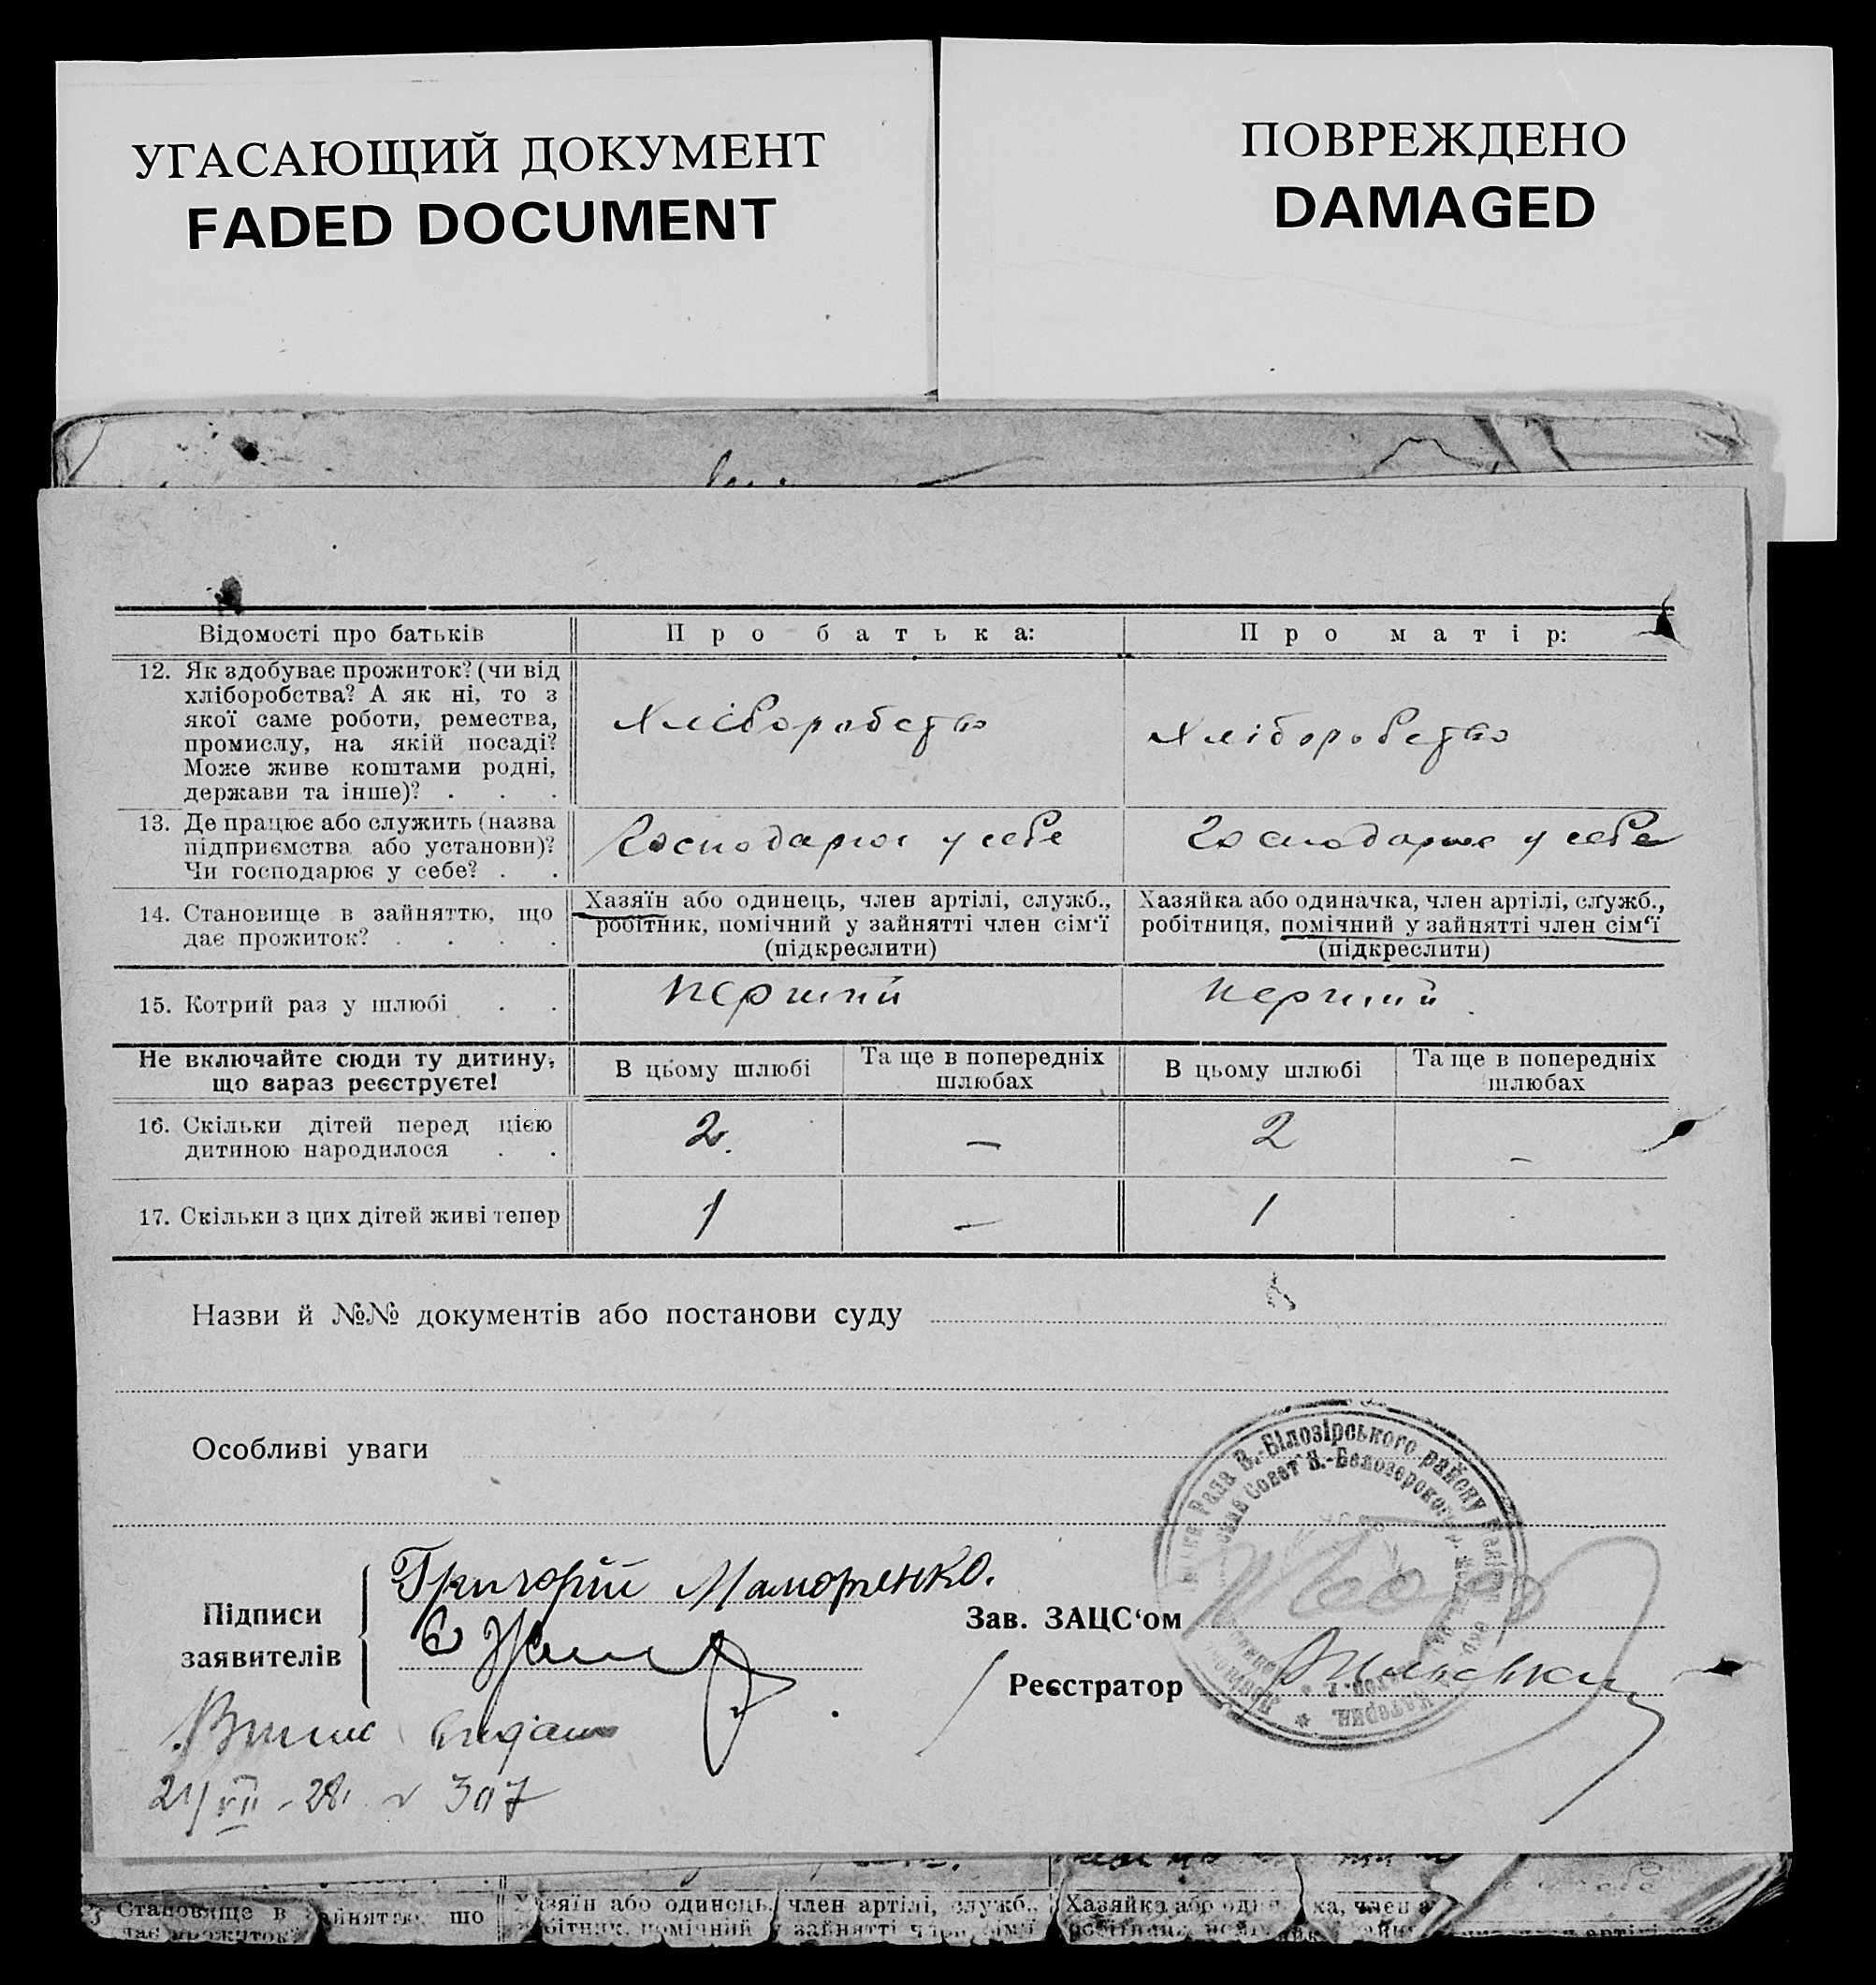 УГАСАЮЩИЙ ДОКУМЕНТ
FADED DOCUMENT
ПОВРЕЖДЕНО
DAMAGED
Відомості про батьків
Про батька:
Про матір:
12. Як здобуває прожиток? (чи від
хліборобства? А як ні, то з
якої саме роботи, ремества,
промислу, на якій посаді?
Може живе коштами родні,
держави та інше)? . . .
Хліборобство
Хліборобство
13. Де працює або служить (назва
підприємства або установи)?
Чи господарює у себе? . .
Господарює у себе
Господарює у себе
14. Становище в зайняттю, що
дає прожиток? . . . .
Хазяїн або одинець, член артілі, служб.,
робітник, помічний у зайнятті член сім‘ї
(підкреслити)
Хазяйка або одиначка, член артілі, служб.,
робітниця, помічний у зайнятті член сім‘ї
(підкреслити)
15. Котрий раз у шлюбі . .
перший
перший
Не включайте сюди ту дитину,
що зараз реєструєте!
В цьому шлюбі
Та ще в попередніх
шлюбах
В цьому шлюбі
Та ще в попередніх
шлюбах
16. Скільки дітей перед цією
дитиною народилося . .
2.
—
2
—
17. Скільки з цих дітей живі тепер
1
—
1
Назви й №№ документів або постанови суду
Особливі уваги
Рада В.-Білозірського району
Совет В.-Белозерского
Підписи
заявителів
Григорій
Зав. ЗАЦС‘ом
Реєстратор
21/VII - 28 307
Становище в зайняттю, що
дає прожиток?
Хазяїн або одинець, член артілі, служб.,
робітник, помічний у зайнятті член сім‘ї
Хазяйка або